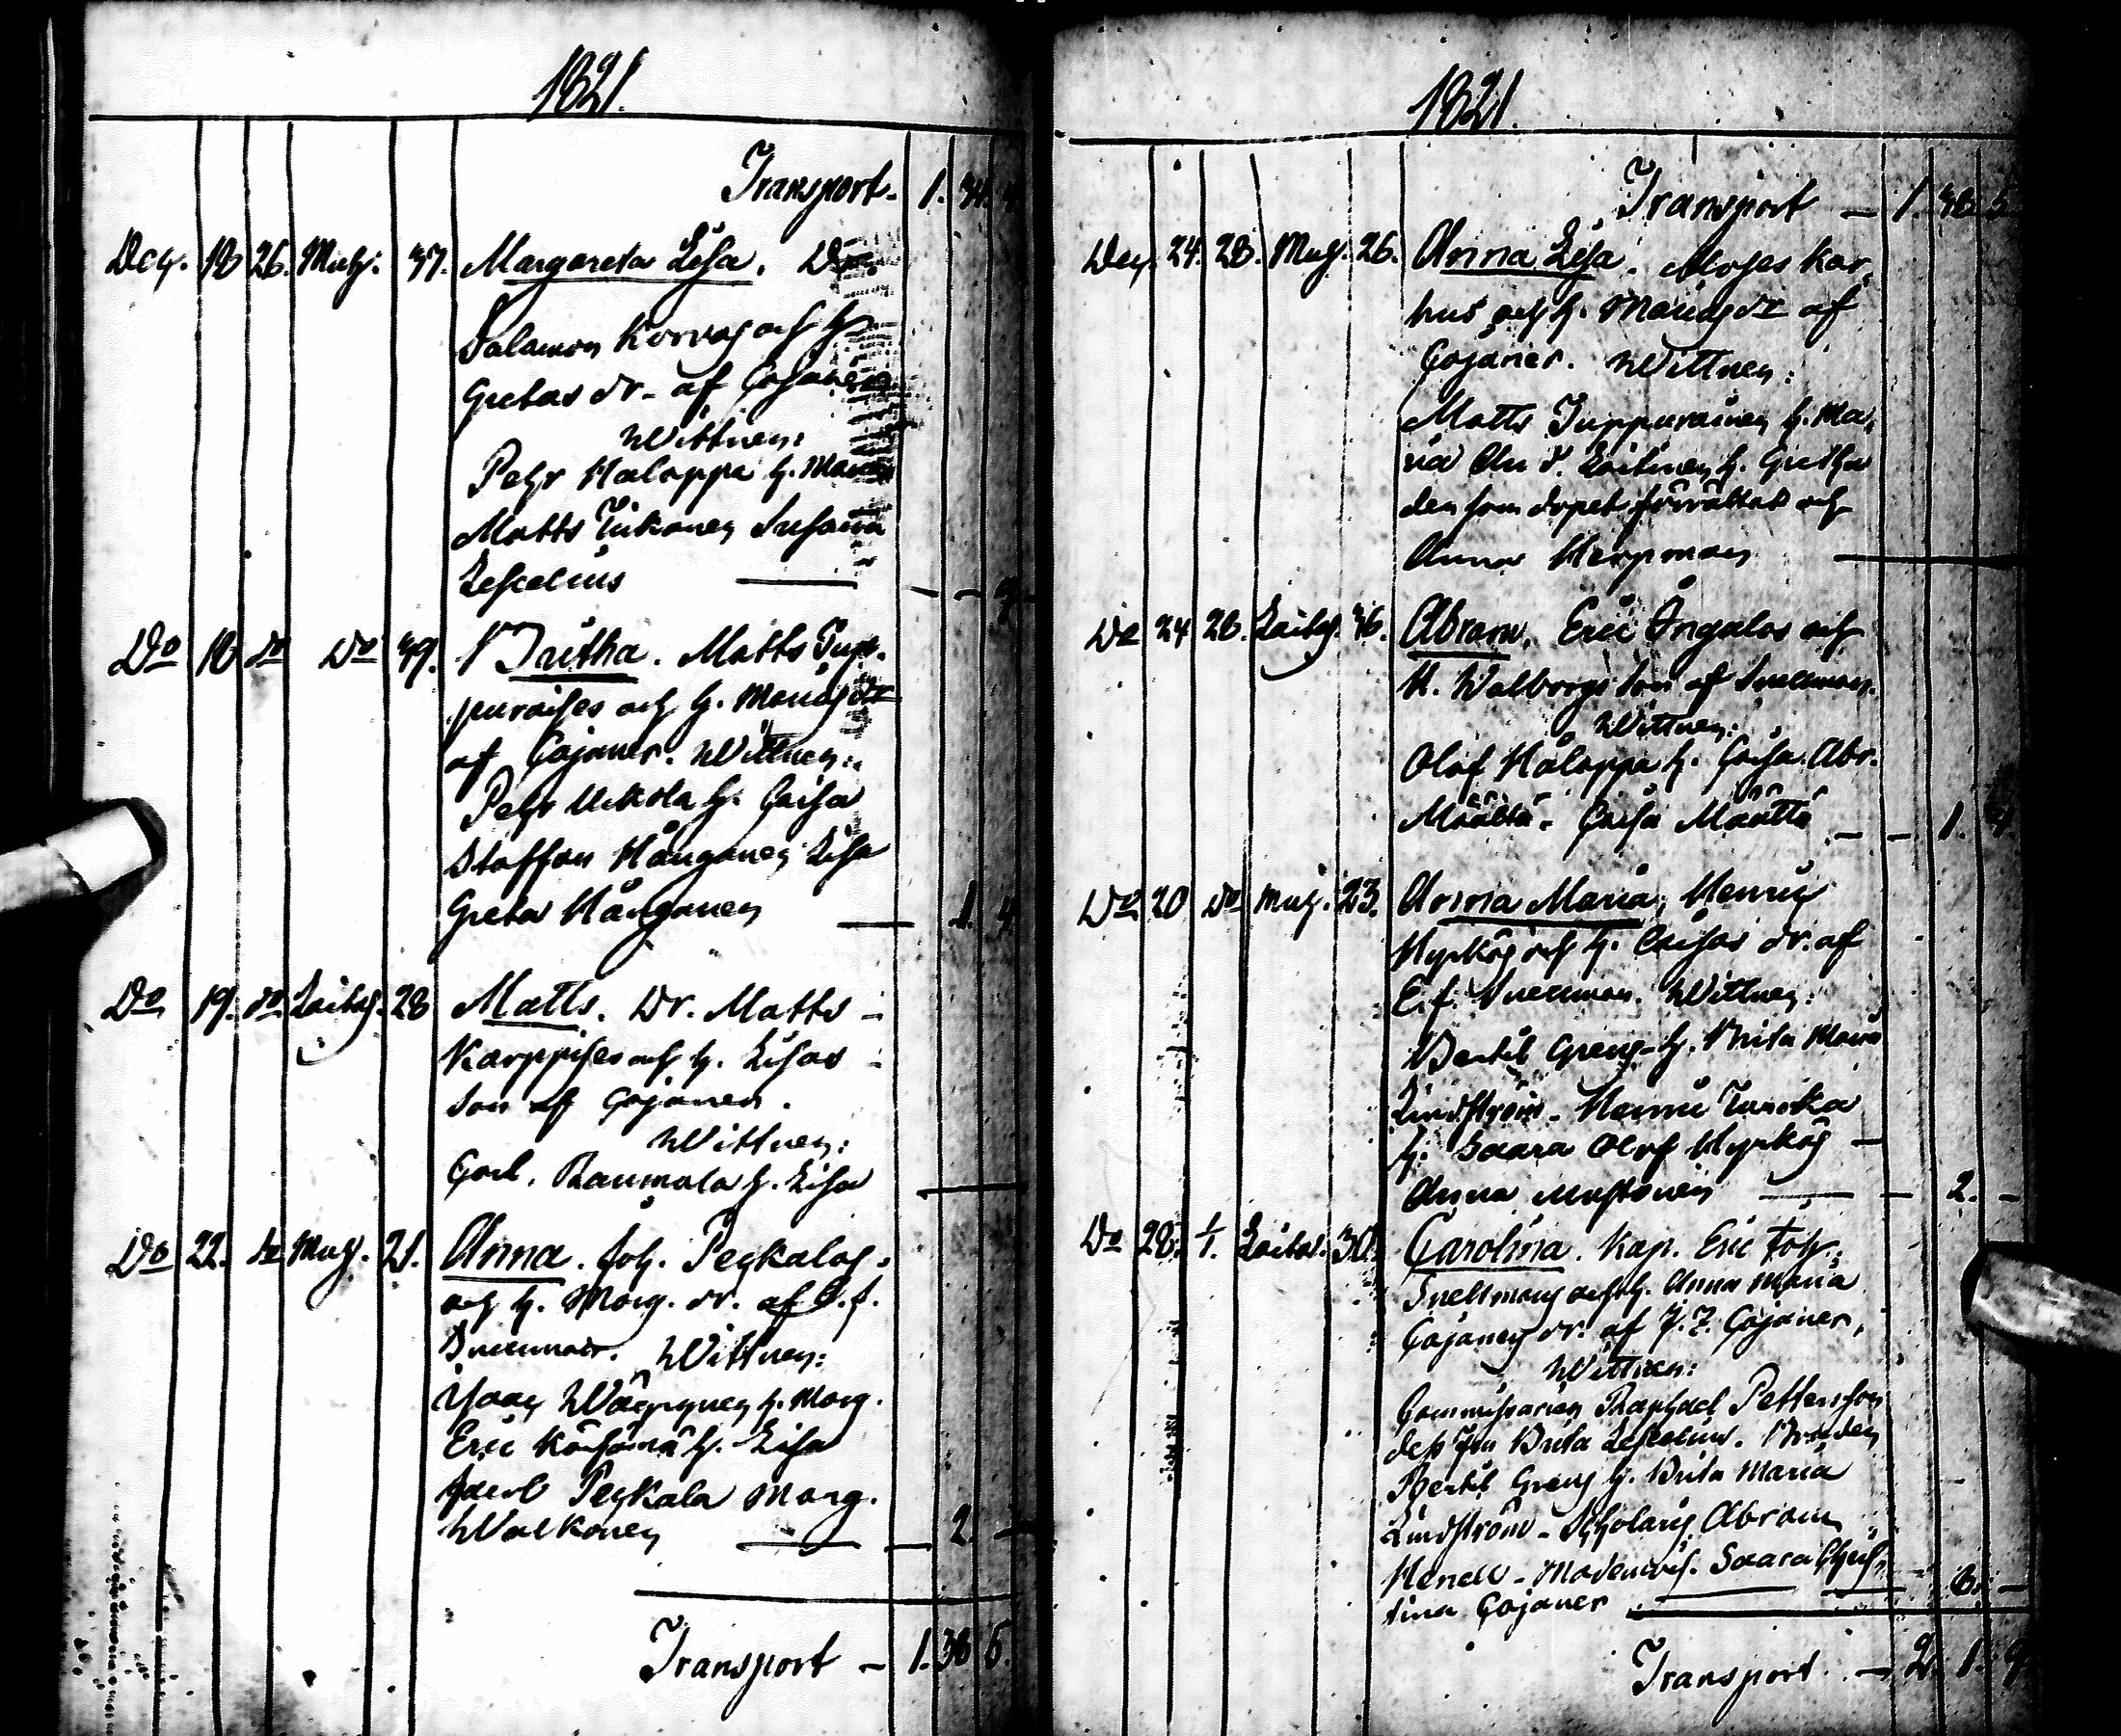 1821.
Transport - 1. 34. 4
Dec. 18 26. Muh. 37. Margareta Lisa. Dr.
Salamon Korvas och h.
Gretas dr. af Cajaner
Wittnen:
Pehr Haloppa h. Maria
Matts Tuhanen Susanna
Zescelius
Do 18 do Do 39. Britha. Matts Tup-
puraises och h. Marias dr
af Cajaner. Wittnen:
Pehr Mikola h. Caisa
Staffan Hånganen Lisa
Greta Hånganen 1. 4
Do 19. do Laitas. 28 Matts. Dr. Matts
Karppises och h. Lisas
son af Cajaner.
Wittnen:
Carl. Raumala h. Lisa
Do 22. do Muh. 21. Anna. Joh. Peykalas
och h. Marg. dr. af E. J.
Snellman. Wittnen:
h. Marg.
Eric h. Lisa
Jacob Peykala Marg.
Walkonen 2. -
Transport - 1. 38 5.
1821.
Transport - 1. 38 5
Dec. 24. 28. Muh. 26. Anna Lisa. Moses Kar-
hus och h. Marias dr af
Cajaner. Wittnen:
Matts Tuppurainen h. Ma-
ria An. d. Laitinen h. Gretha
den som dopet förrättat och
Anna Herpman
Do 24 28. Laitas. 36. Abram. Eric Ångalas och
H. Walborgs son af Snellman.
Wittnen:
Olof Haloppa h. Caisa. Abr.
Määttä. Caisa Määttä - - 1.
Do 20 do Muh. 23. Anna Maria, Henric
Hyrkös och h. Caisas dr. af
E. J. Snellman. Wittnen:
Bertil Greus h. Brita Maria
Lindström - Henric
h. Saara Olof Hyrkös -
Anna Mustonen - 2. -
Do 28. 1/1. Laitas. 30. Carolina. Kap. Eric Joh.
Snellmans och h. Anna Maria
Cajanus dr. af J. Z. Cajaner,
Wittnen:
Commissarien Raphael Pettersson
dess fru Brita Zescelius. Bruden
Bertil Greus h. Brita Maria
Lindström - Scholaris Abram
Henell - Mademois. Saara Chris-
tina Cajaner 6. -
Transport. - 2. 1. 9